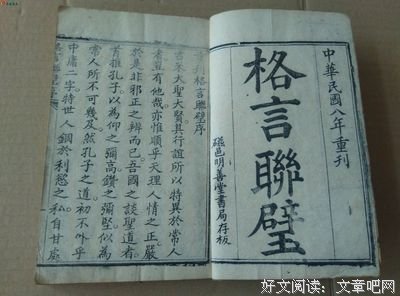 中華民國八年重刊
格言聯璧
磁邑明善堂書局存板
格言聯璧序
古來大聖大賢其行誼所以特異於常人
者豈有他哉亦惟順乎天理人情之正嚴
於是非邪正之辨而已吾國之談聖道者
首推孔子以為仰之彌高鑽之彌堅似為
常人所不可幾及然孔子之道初不外乎
中庸二字特世人錮於利慾之私自甘處
好文阅读：文章吧网